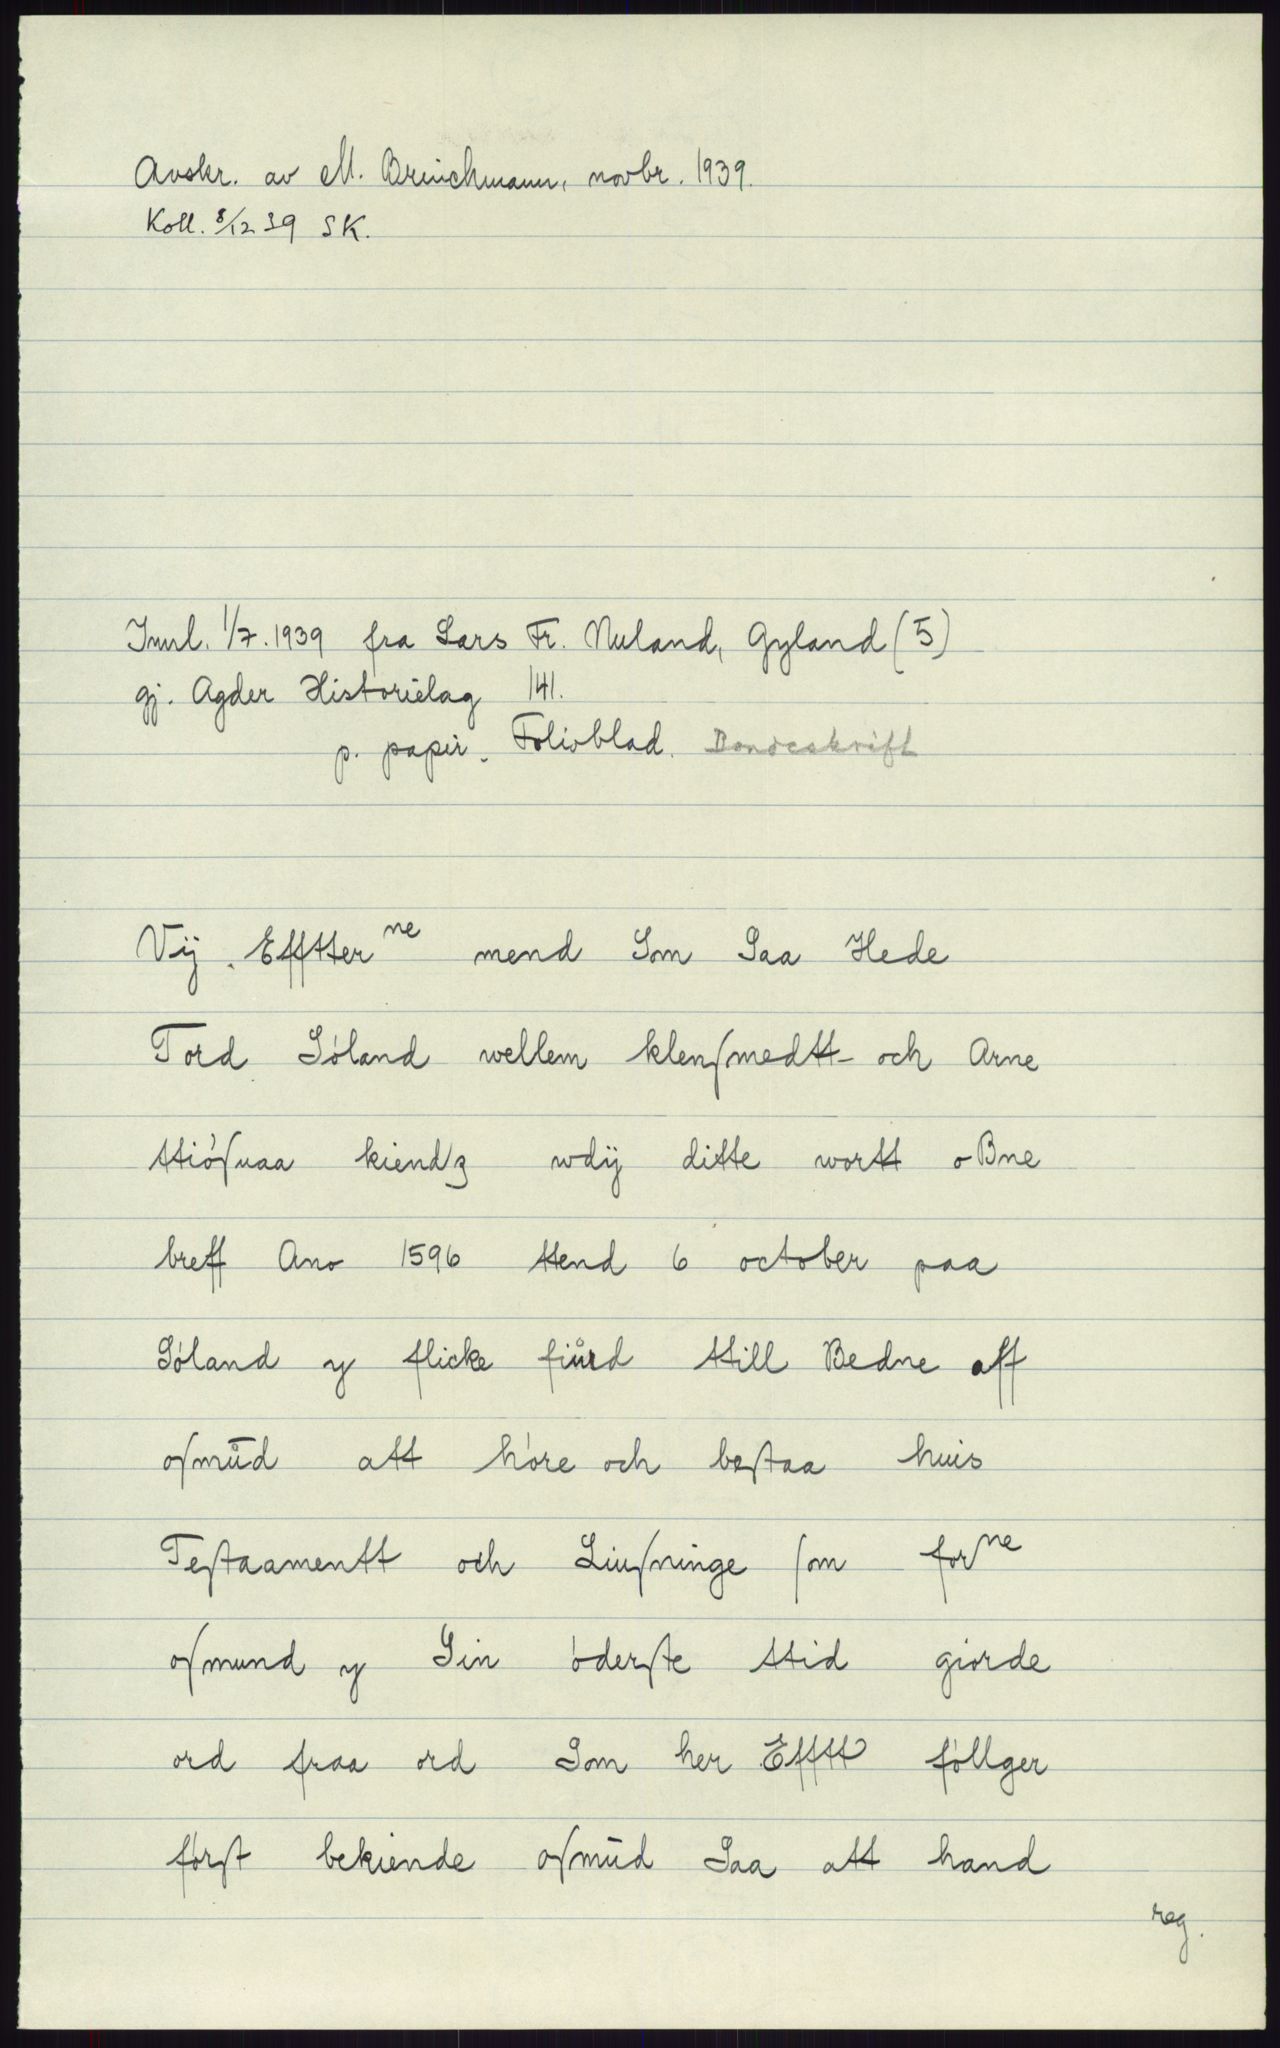 Avskr. av M. Brinchmann, novbr. 1939.
Koll. 8/12 39 SK.
Innl. 1/7. 1939 fra Lars Fr. Nuland, Gyland (5)
gj. Agder Historielag 141.
p. papir. Folioblad. Bondeskrift
Vij Efftter ne mend Som Saa Hede
Tord Sóland wellem klenſmedtt och Arne
ttióſuaa kiendz wdij ditte wortt oBne
breff Ano 1596 ttend 6 october paa
Sóland y flicke fiůrd ttill Bedne aff
oſmůd att hóre och beſtaa huis
Teſtaamentt och Liuſninge ſom for ne
oſmund y Sin óderſte ttid giorde
ord fraa ord Som her Efftt fóllger
fórſt bekiende oſmūd Saa att hand
reg.